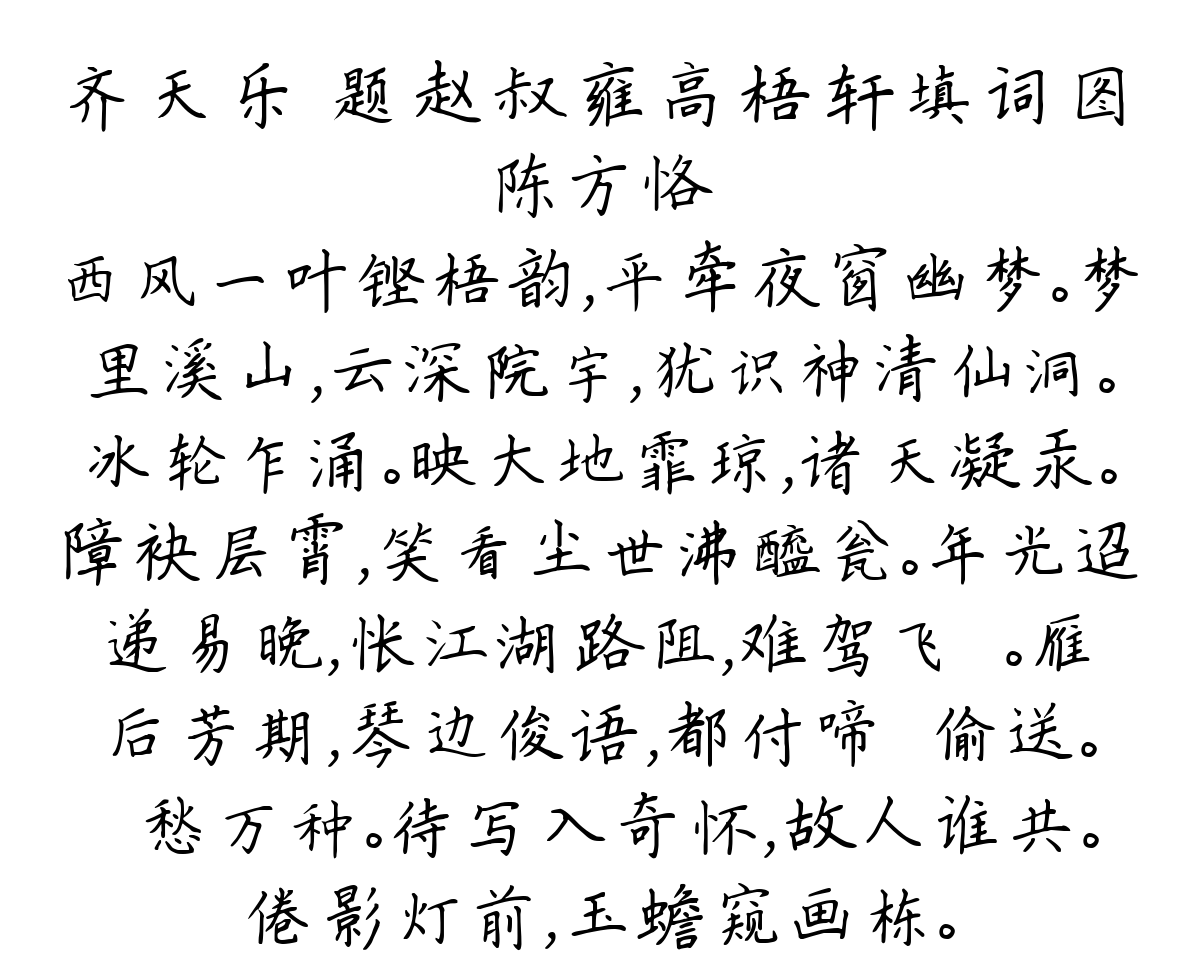 齐天乐 题赵叔雍高梧轩填词图
陈方恪
西风一叶铿梧韵,平牵夜窗幽梦。梦
里溪山,云深院宇,犹识神清仙洞。
冰轮乍涌。映大地霏琼,诸天凝汞。
障袂层霄,笑看尘世沸醯瓮。年光迢
递易晚,怅江湖路阻,难驾飞 。雁
后芳期,琴边俊语,都付啼 偷送。
愁万种。待写入奇怀,故人谁共。
倦影灯前,玉蟾窥画栋。